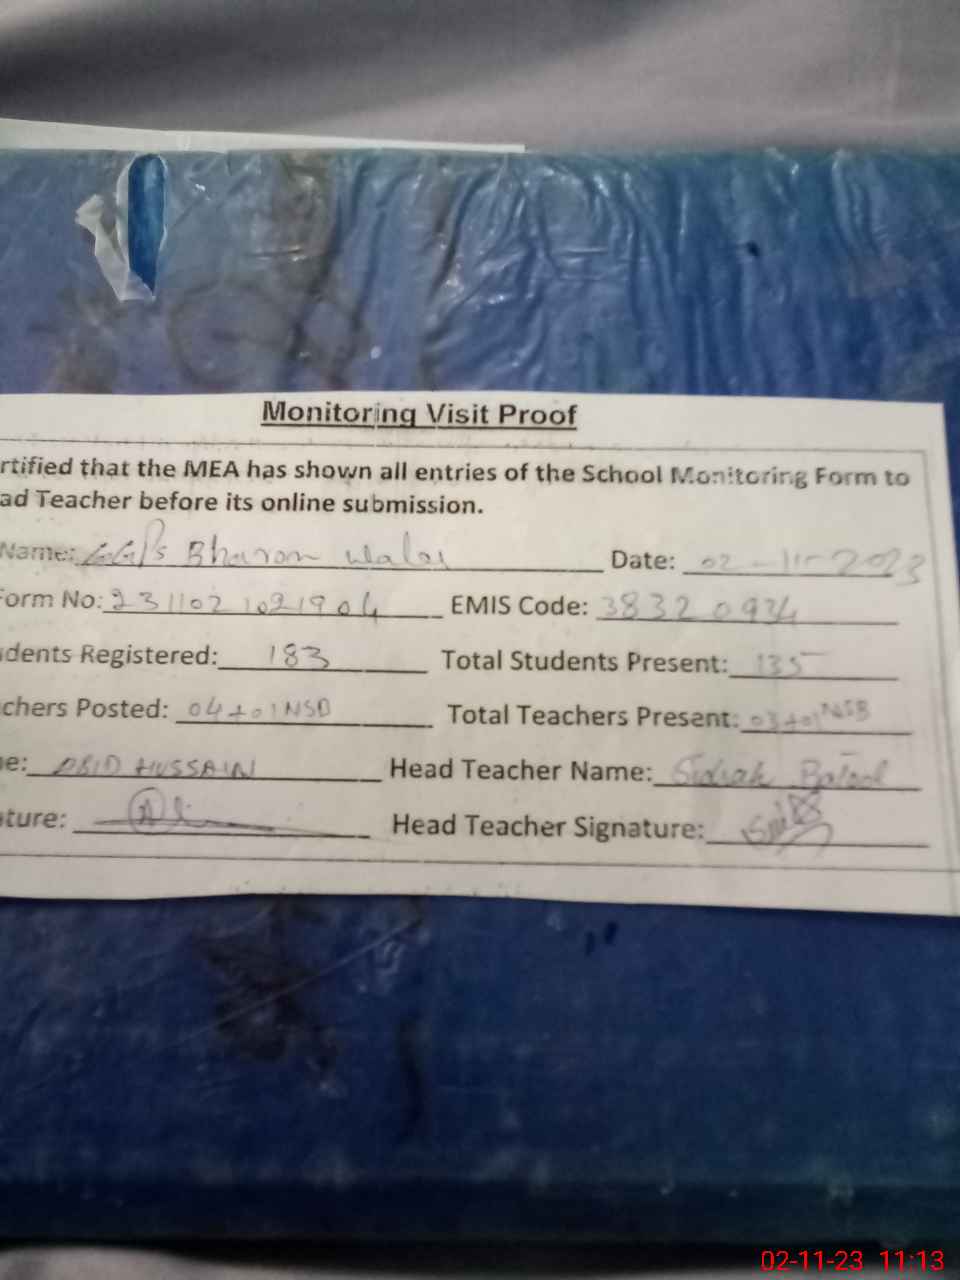 Monitoring Visit Proof
rtified that the MEA has shown all entries of the School Monitoring Form to
ad Teacher before its online submission.
Name: GGPS Bharom Wala Date: 02-11-2023
Form No: 231102 1021904 EMIS Code: 38320934
dents Registered: 183 Total Students Present: 135
chers Posted: 04+01NSB Total Teachers Present: 03+01NSB
e: ABID HUSSAIN Head Teacher Name: Sidrah Batool
ture: Head Teacher Signature:
02-11-23 11:13